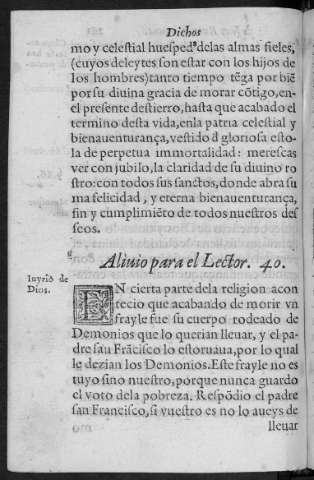 Dichos
mo y celestial huesped, delas almas fieles,
(cuyos deleytes son estar con los hijos de
los hombres) tanto tiempo tẽga por biẽ
por su diuina gracia de morar cõtigo, en-
el presente destierro, hasta que acabado el
termino desta vida, enla patria celestial y
bienauenturança, vestido đ gloriosa esto-
la de perpetua immortalidad: merescas
ver con jubilo, la claridad de su diuino ro
stro: con todos sus sanctos, donde abra su
ma felicidad, y eterna bienauenturança,
fin y cumplimiẽto de todos nuestros des
seos.
Aliuio para el Lector. 40.
Dios.
EN cierta parte dela religion acon
tecio que acabando de morir vn
frayle fue su cuerpo rodeado de
Demonios que lo querian lleuar, y el pa-
dre san Frãcisco lo estoruaua, por lo qual
le dezian los Demonios. Este frayle no es
tuyo sino nuestro, porque nunca guardo
el voto dela pobreza. Respõdio el padre
san Francisco, si vuestro es no lo aueys de
lleuar